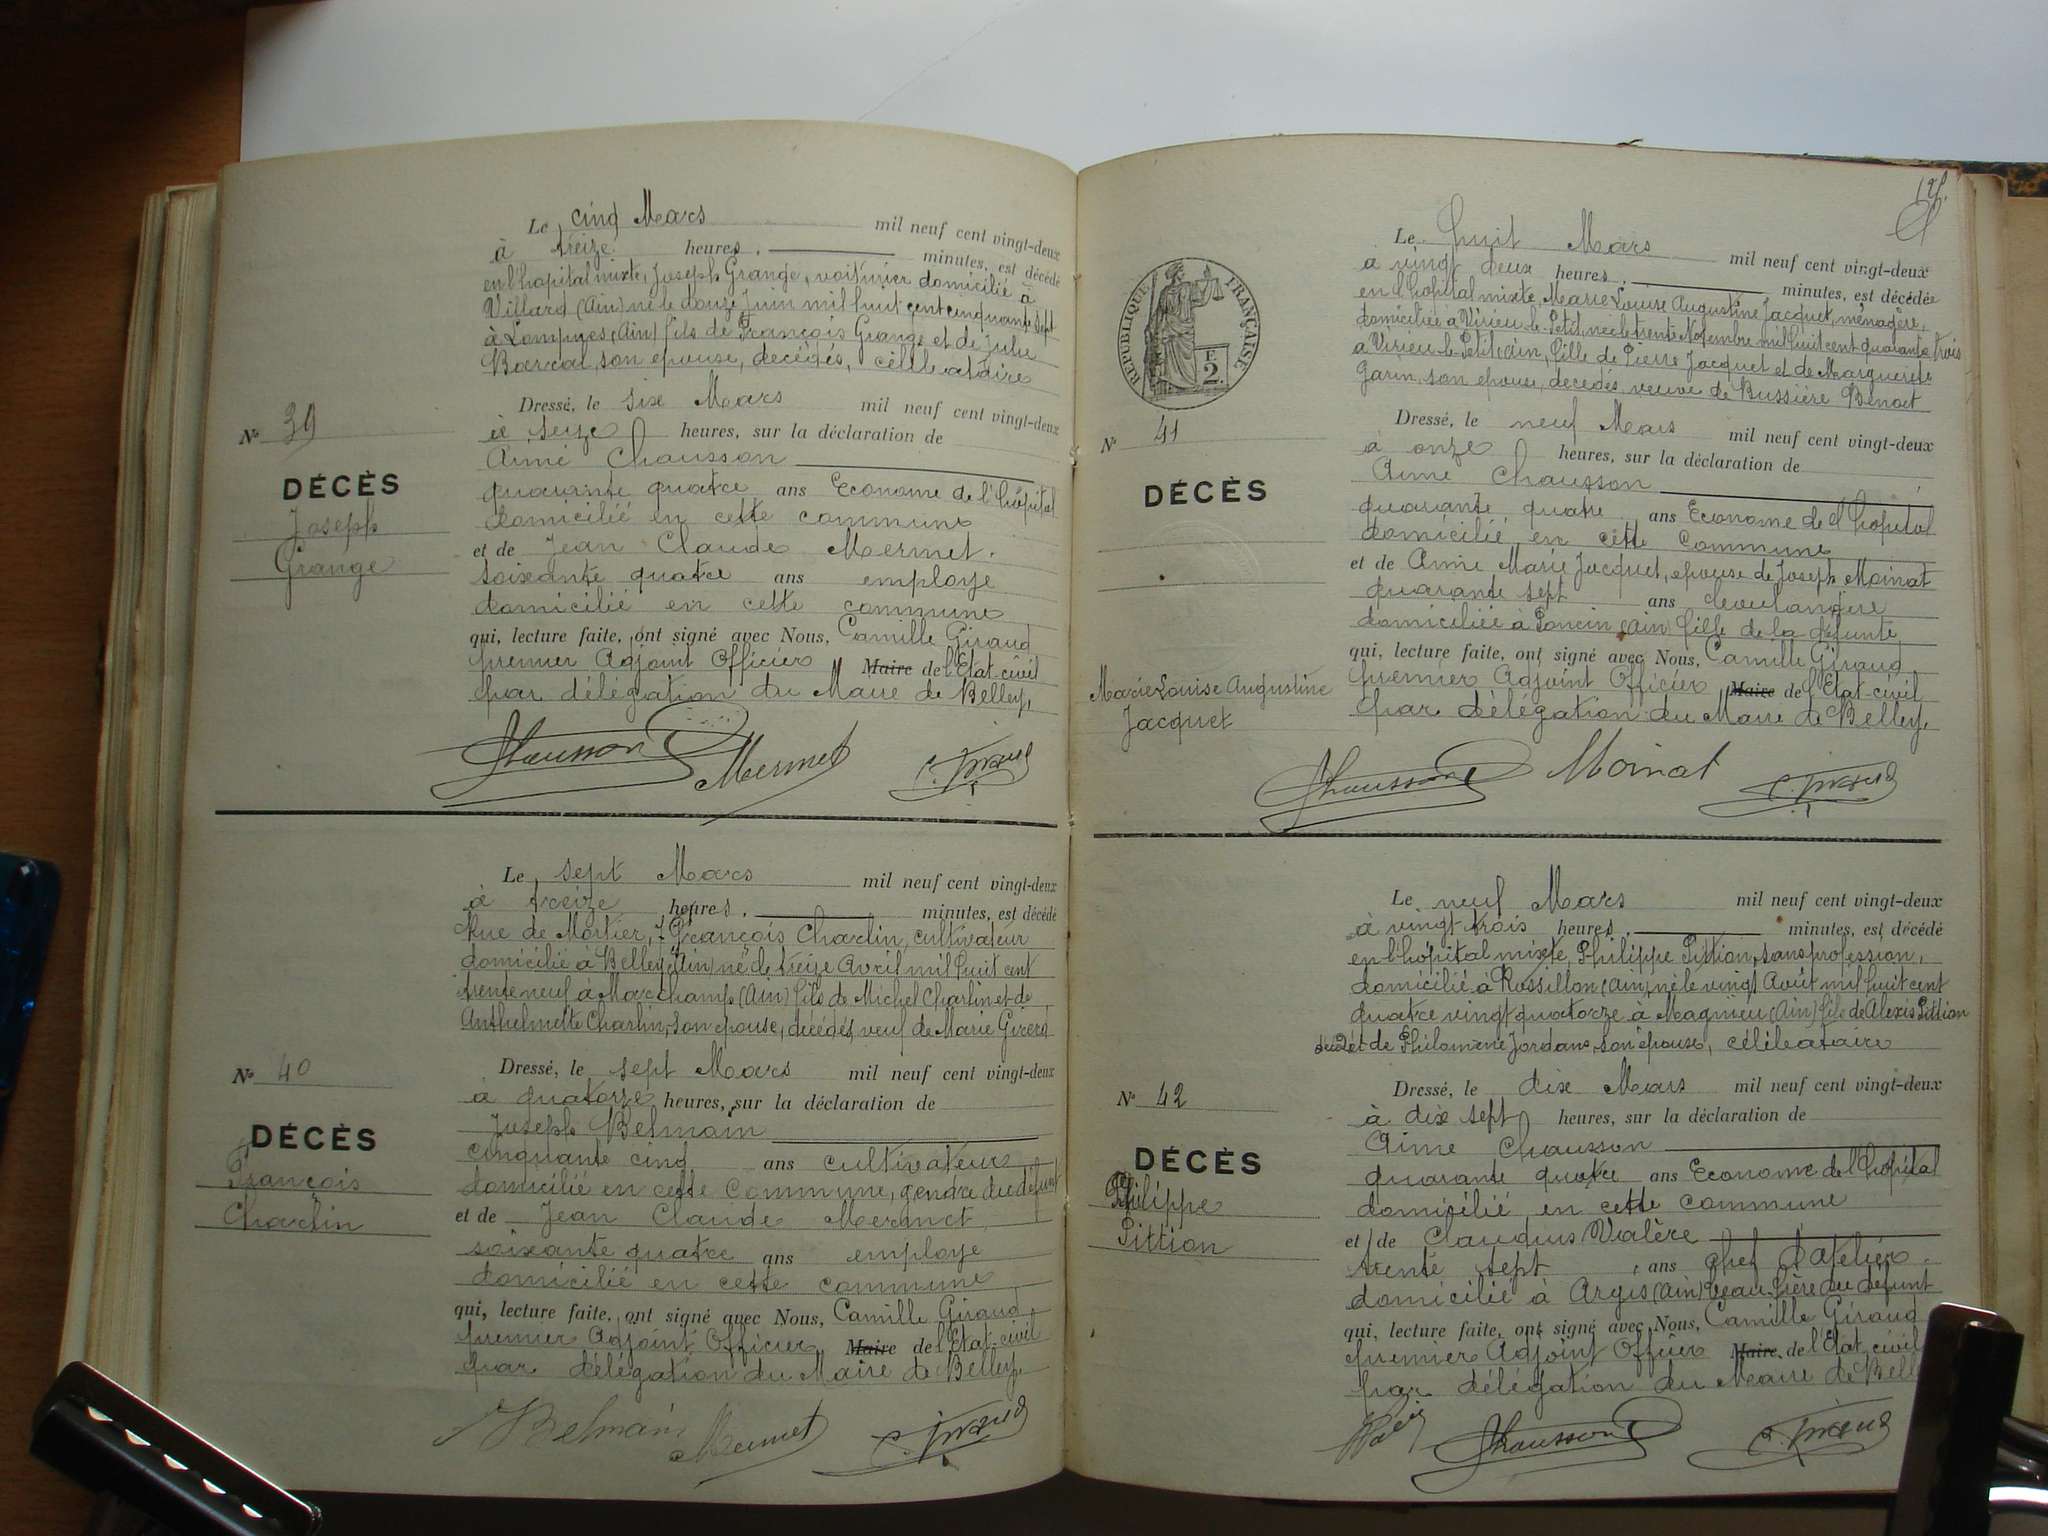 Le cinq Mars mil neuf cent vingt-deux
à treize heures, minutes, est décédé
en l'hopital mixte, Joseph Grange, voiturier domicilié à
Villard (Ain) né le douze Juin mil huit cent cinquante sept
à Lompnes (Ain) fils de François Grange et de Julie
son epouse, decédés, célibataire
Nº 39
DÉCÈS
Joseph
Grange
Dressé, le six Mars mil neuf cent vingt-deux
à seize heures, sur la déclaration de
Aimé Chausson
quarante quatre ans Econome de l'hôpital
domicilié en cette commune
et de Jean Claude Mermet.
soixante quatre ans employé
domicilié en cette commune
qui, lecture faite, ont signé avec Nous, Camille Giraud
premier Adjoint Officier Maire de l'Etat-civil
par délégation du Maire de Belley.
Chausson Mermet C. Giraud
Le sept Mars mil neuf cent vingt-deux
à treize heures, minutes, est décédé
Rue de Mortier, 7 François Charlin, cultivateur
domicilié à Belley (Ain) né le treize Avril mil huit cent
trente neuf à Marchamp (Ain) fils de Michel Charlin et de
Anthelmette Charlin, son epouse, décédés, veuf de Marie Girerd
Nº 40
DÉCÈS
François
Charlin
Dressé, le sept Mars mil neuf cent vingt-deux
à quatorze heures, sur la déclaration de
Joseph Belmain
cinquante cinq ans cultivateur
domicilié en cette Commune, gendre du défunt
et de Jean Claude Mermet
soixante quatre ans employé
domicilié en cette commune
qui, lecture faite, ont signé avec Nous, Camille Giraud
premier Adjoint Officier Maire de l'Etat-civil
par délégation du Maire de Belley.
Belmain Mermet C. Giraud
RÉPUBLIQUE FRANÇAISE
E
2.
Le huit Mars mil neuf cent vingt-deux
à vingt deux heures, minutes, est décédée
en l'hopital mixte, Marie Louise Augustine Jacquet, ménagère,
domiciliée à Virieu-le-Petit, née le trente Novembre mil huit cent quarante trois
à Virieu-le-Petit (Ain, fille de Pierre Jacquet et de Marguerite
Garin, son epouse, decedés, veuve de Bussière Benoit
Nº 41
DÉCÈS
Marie Louise Augustine
Jacquet
Dressé, le neuf Mars mil neuf cent vingt-deux
à onze heures, sur la déclaration de
Aimé Chausson
quarante quatre ans Econome de l'hopital
domicilié en cette commune
et de Anne Marie Jacquet, epouse de Joseph Moinat
quarante sept ans
domiciliée à Poncin (Ain) fille de la défunte
qui, lecture faite, ont signé avec Nous, Camille Giraud
premier Adjoint Officier Maire de l'Etat-civil
par délégation du Maire de Belley.
Chausson Moinat C. Giraud
Le neuf Mars mil neuf cent vingt-deux
à vingt trois heures, minutes, est décédé
en l'hôpital mixte, Philippe Pittion, sans profession,
domicilié à Rossillon (Ain) né le vingt Août mil huit cent
quatre vingt quatorze à Magnieu (Ain) fils de Alexis Pittion
et de Philomène Jordan, son epouse, célibataire
Nº 42
DÉCÈS
Philippe
Pittion
Dressé, le dix Mars mil neuf cent vingt-deux
à dix sept heures, sur la déclaration de
Aimé Chausson
quarante quatre ans Econome de l'hopital
domicilié en cette commune
et de Claudius Valère
trente sept ans chef d'atelier
domicilié à Argis (Ain) beau-frère du défunt
qui, lecture faite, ont signé avec Nous, Camille Giraud
premier Adjoint Officier Maire de l'Etat-civil
par délégation du Maire de Bell
Chausson C. Giraud